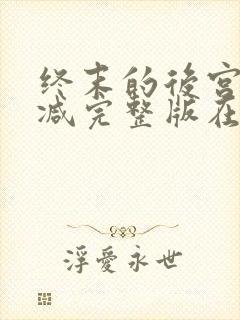 终末的後宫
减完整版在
浮愛永世